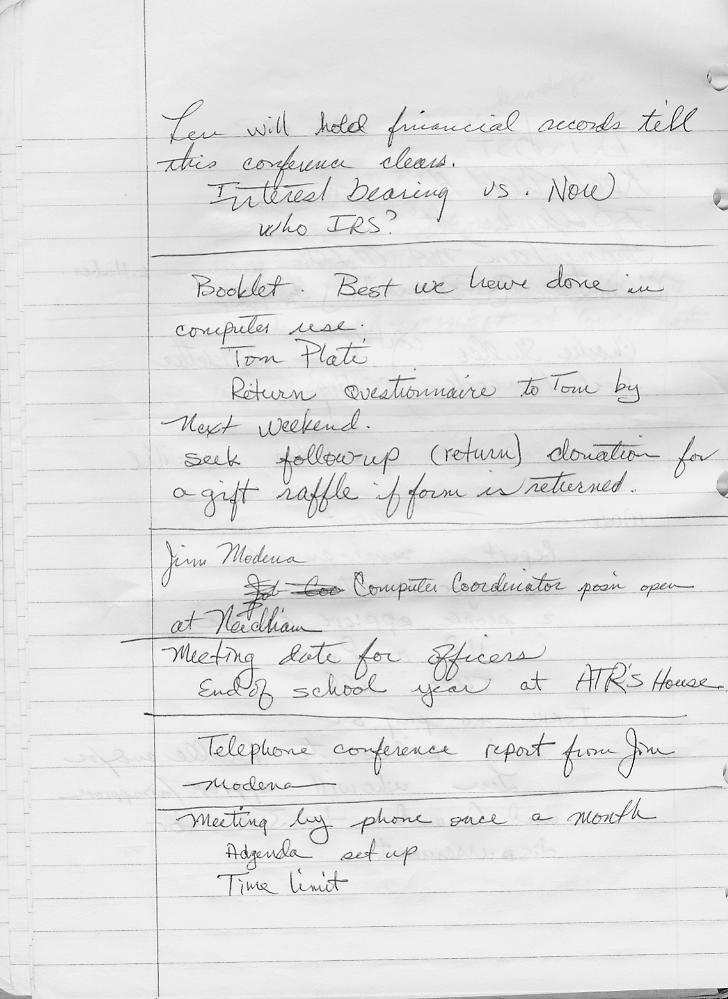 Len will hold financial records till
this conference clears.
Interest bearing vs. Now
who IRS?
Booklet. Best we have done in
computer use.
Tom Plati
Return Questionnaire to Tom by
Next weekend.
seek follow-up (return) donation for
a gift raffle if form is returned.
Jim Modena
Job Coo Computer Coordinator pos'n open
at Needham
Meeting date for officers
End of school year at ATR's House
Telephone conference report from Jim
Modena
Meeting by phone once a month
Adgenda set up
Time limit